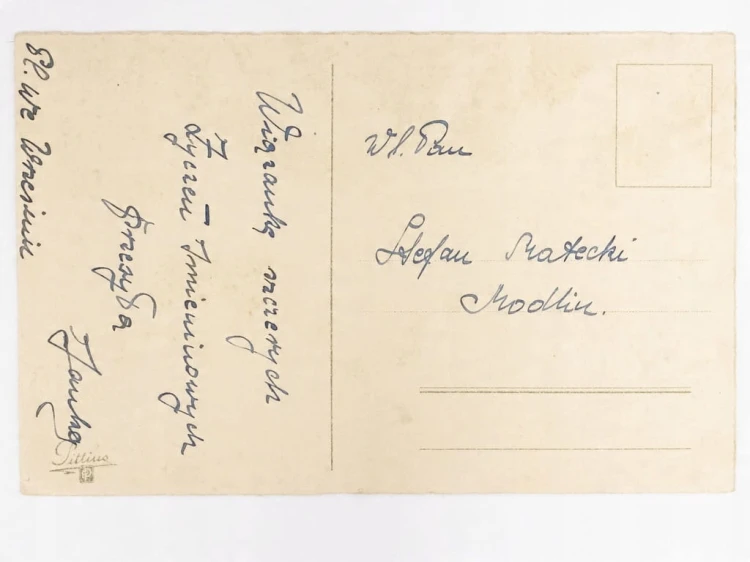 Wiązankę szczerych
Życzeń Imieninowych
Przesyła
Janka
we Wrześniu
Wł. Pan
Stefan Małecki
Modlin.